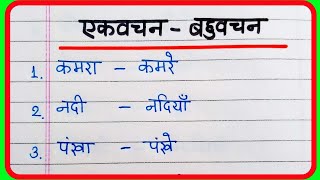 एकवचन - बहुवचन
1. कमरा - कमरे
2. नदी - नदियाँ
3. पंखा - पंखे